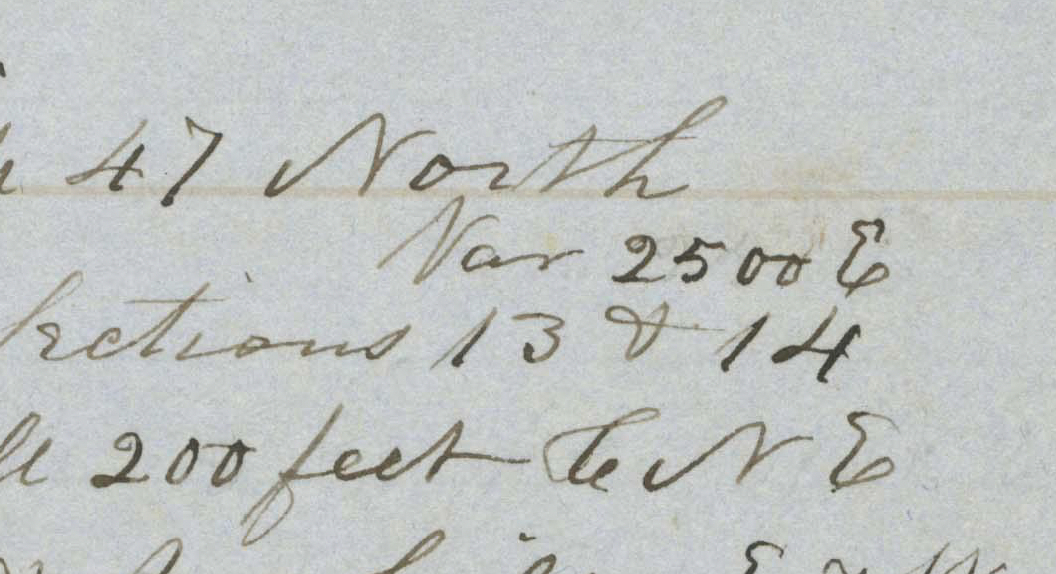 47 North
Var 2500 E
Sections 13 & 14
200 feet to N E